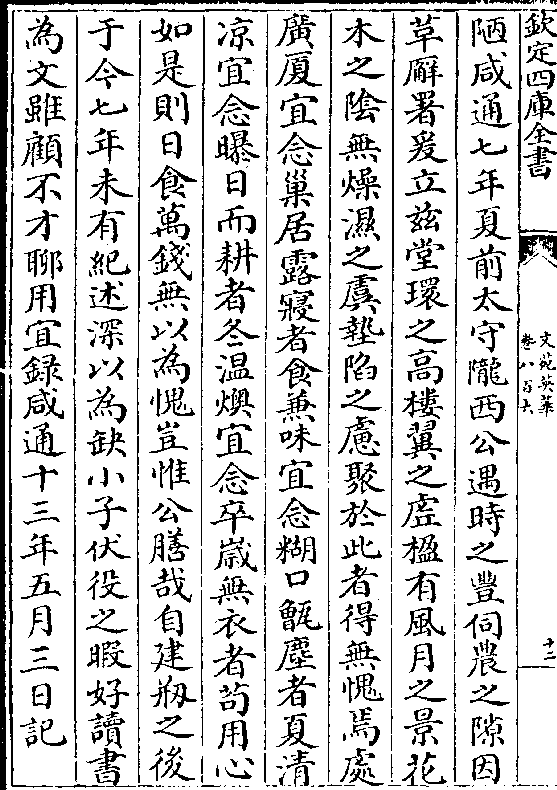 欽定四庫全書
文苑英華
卷八百六
十二
陋咸通七年夏前太守隴西公遇時之豐伺農之隙因
草廨署爰立兹堂環之高樓翼之虚楹有風月之景花
木之隂無燥濕之虞墊陷之慮聚於此者得無愧焉處
廣厦宜念巢居露寢者食兼味宜念糊口甑塵者夏清
凉宜念曝日而耕者冬温燠宜念卒嵗無衣者苟用心
如是則日食萬錢無以為愧豈惟公膳哉自建剏之後
于今七年未有紀述深以為缺小子伏役之暇好讀書
為文雖顧不才聊用宜録咸通十三年五月三日記